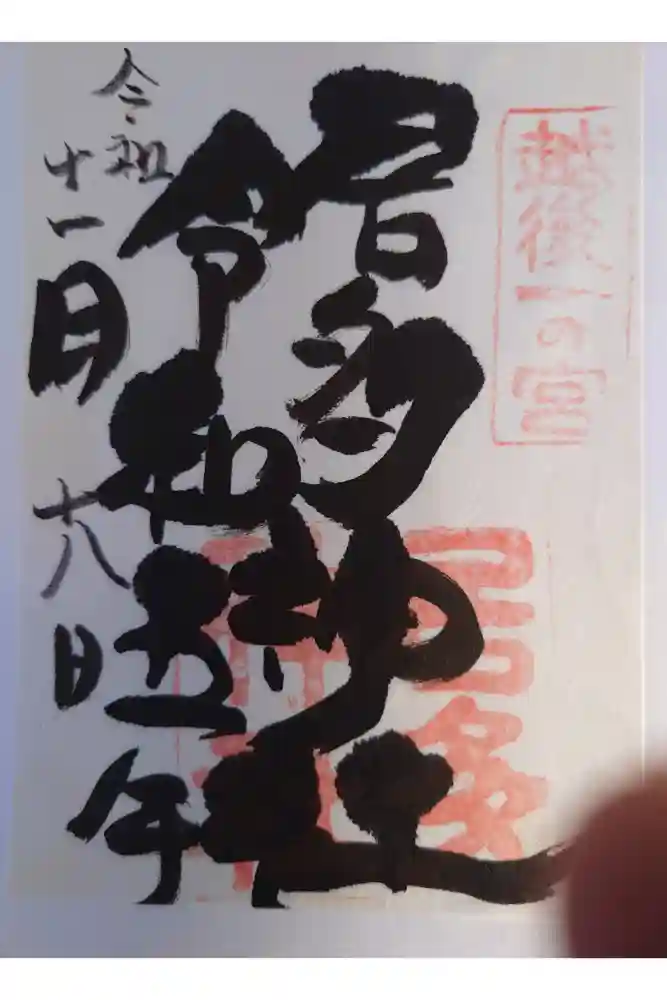 越後一の宮
居多神社
居多神社
令和五年
十一月十八日